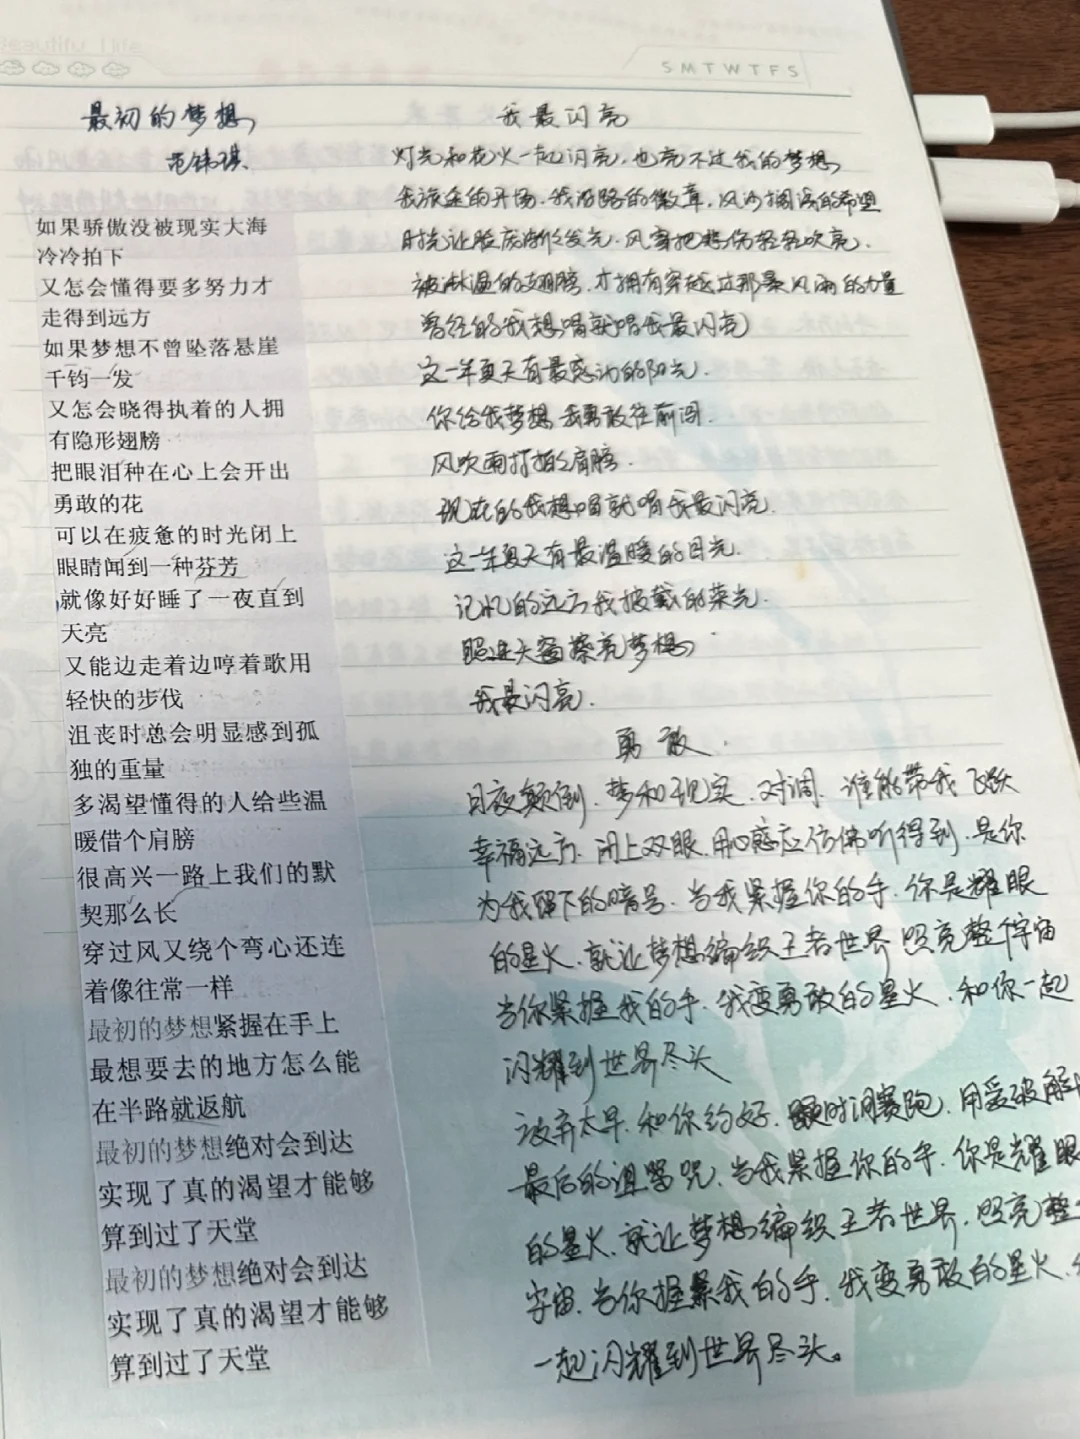 Beautiful Life
S M T W T F S
最初的梦想
范玮琪
如果骄傲没被现实大海
冷冷拍下
又怎会懂得要多努力才
走得到远方
如果梦想不曾坠落悬崖
千钧一发
又怎会晓得执着的人拥
有隐形翅膀
把眼泪种在心上会开出
勇敢的花
可以在疲惫的时光闭上
眼睛闻到一种芬芳
就像好好睡了一夜直到
天亮
又能边走着边哼着歌用
轻快的步伐
沮丧时总会明显感到孤
独的重量
多渴望懂得的人给些温
暖借个肩膀
很高兴一路上我们的默
契那么长
穿过风又绕个弯心还连
着像往常一样
最初的梦想紧握在手上
最想要去的地方怎么能
在半路就返航
最初的梦想绝对会到达
实现了真的渴望才能够
算到过了天堂
最初的梦想绝对会到达
实现了真的渴望才能够
算到过了天堂
我最闪亮
灯光和花火一起闪亮.也亮不过我的梦想
我旅途的开场.我沿路的徽章.风沙搁浅的希望
时光让脸庞渐渐发光.风霜把悲伤轻轻吹亮.
被淋湿的翅膀.才拥有穿越过那暴风雨的力量
曾经的我想唱就唱我最闪亮
这一年夏天有最感动的阳光.
你给我梦想 我勇敢往前闯.
风吹雨打的肩膀.
现在的我想唱就唱我最闪亮.
这一年夏天有最温暖的目光.
记忆的远方我披戴的荣光.
照进天窗擦亮梦想
我最闪亮.
勇敢.
日夜颠倒.梦和现实.对调.谁能带我飞跃
幸福远方.闭上双眼.用心感应仿佛听得到.是你
为我留下的暗号.当我紧握你的手.你是耀眼
的星火.就让梦想编织王者世界 照亮整个宇宙
当你紧握我的手.我变勇敢的星火.和你一起
闪耀到世界尽头
放弃太早.和你约好.跟时间赛跑.用爱破解
最后的诅咒.当我紧握你的手.你是耀眼
的星火.就让梦想编织王者世界.照亮整
宇宙.当你握紧我的手.我变勇敢的星火.
一起闪耀到世界尽头。